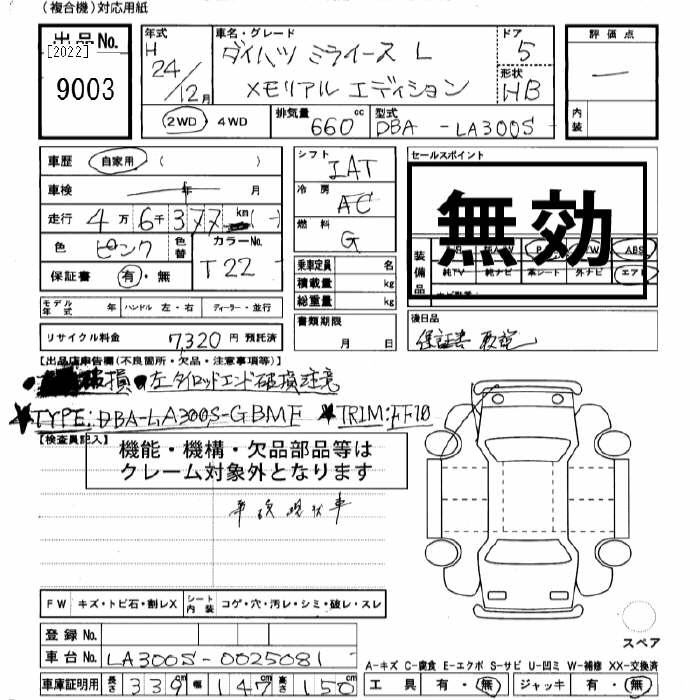 (複合機)対応用紙
出品No. [2022] 9003
年式 H 24/12月
車名・グレード ダイハツ ミライース L
メモリアル エディション
ドア 5
形状 HB
評価点 —
内装
2WD・4WD 排気量 660cc 型式 DBA -LA300S-
車歴 自家用 ( )
車検 年 月
走行 4万6千377km(-)
色 ピンク 色替 カラーNo. T22
保証書 有・無
モデル年式 年 ハンドル 左・右 ディーラー・並行
リサイクル料金 7,320円 預託済
シフト IAT
冷房 AC
燃料 G
乗車定員 名
積載量 kg
総重量 kg
書類期限
月 日
セールスポイント
無効
装備品 ABS
純TV 純ナビ 革シート 外ナビ エアB
後日品
保証書 取説
【出品店申告欄(不良箇所・欠品・注意事項等)】
破損 ●左タイロッドエンド破損注意
★TYPE:DBA-LA300S-GBMF ★TRIM:FF10
【検査員記入】
機能・機構・欠品部品等は
クレーム対象外となります
車検 現状車
FW キズ・トビ石・割レX シート内装 コゲ・穴・汚レ・シミ・破レ・スレ
登録No.
車台No. LA300S-0025081
車庫証明用 長さ 339cm 幅 147cm 高さ 150cm
スペア
A-キズ C-腐食 E-エクボ S-サビ U-凹ミ W-補修 XX-交換済
工具 有・無 ジャッキ 有・無